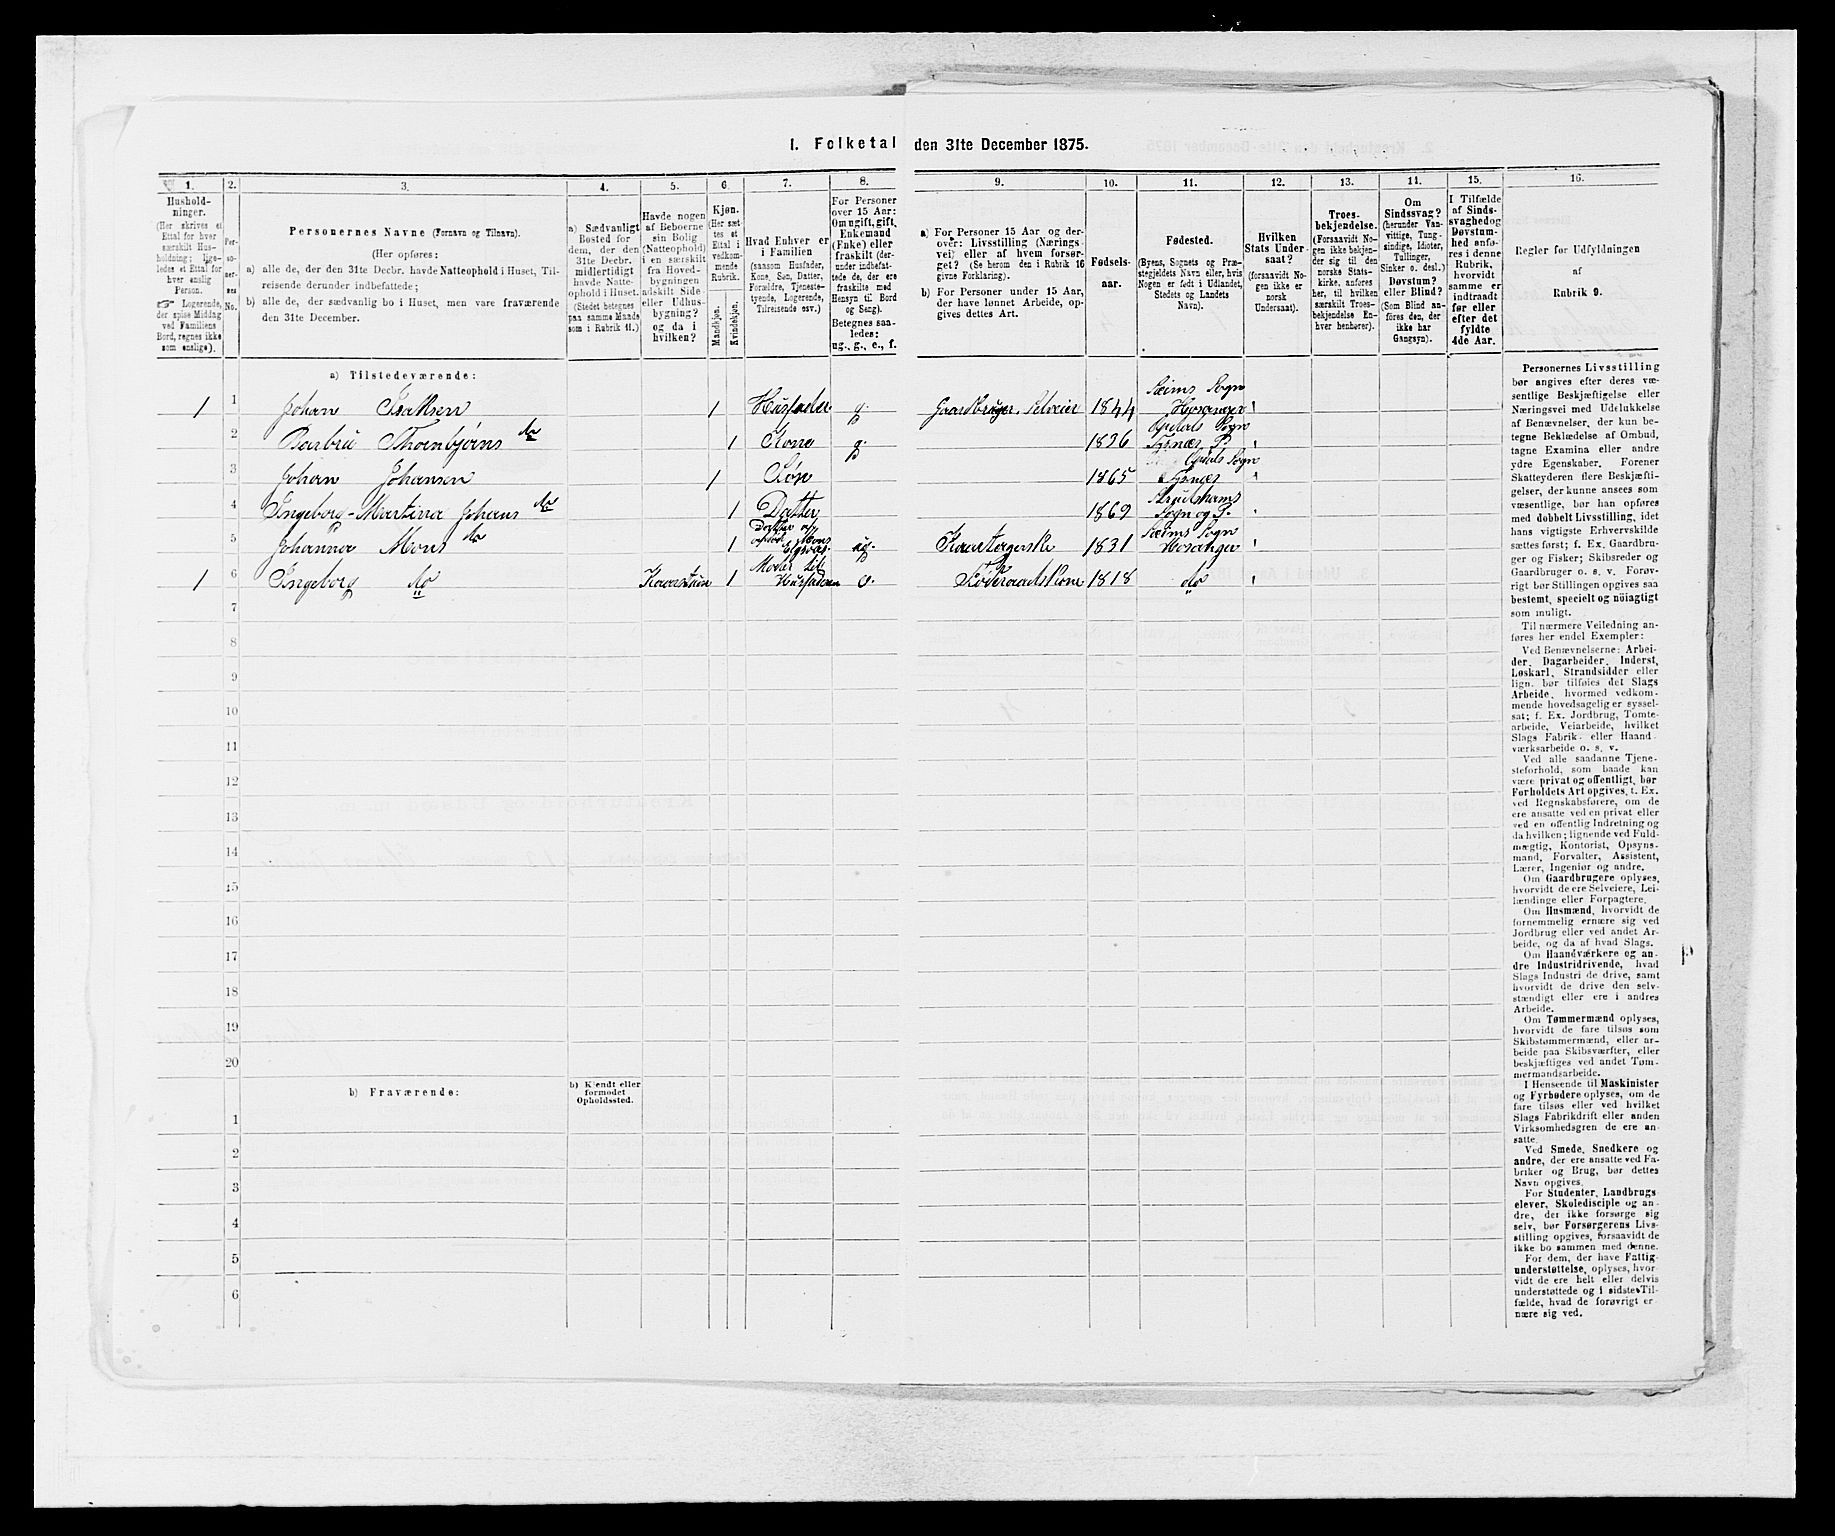 I. Folketal den 31te December 1875.
1. 2. 3. 4. 5. 6. 7. 8. 9. 10. 11. 12. 13. 14. 15. 16.
Hushold-
ninger.
(Her skrives et
Ettal for hver
særskilt Hus-
holdning; lige-
ledes et Ettal for
hver enslig
Person.
☞ Logerende,
der spise Middag
ved Familiens
Bord, regnes ikke
som enslige).
Per-
so-
ner-
nes
No.
Personernes Navne (Fornavn og Tilnavn).
(Her opføres:
a) alle de, der den 31te Decbr. havde Natteophold i Huset, Til-
reisende derunder indbefattede;
b) alle de, der sædvanlig bo i Huset, men vare fraværende
den 31te December.
a) Sædvanligt
Bosted for
dem, der den
31te Decbr.
midlertidigt
havde Natte-
ophold i Huset.
(Stedet betegnes
paa samme Maade
som i Rubrik 11.)
Havde nogen
af Beboerne
sin Bolig
(Natteophold)
i en særskilt
fra Hoved-
bygningen
adskilt Side
eller Udhus-
bygning?
og da i
hvilken?
Kjøn.
(Her sæt-
tes et
Ettal i
vedkom-
mende
Rubrik.
Mandkjøn.
Kvindekjøn.
Hvad Enhver er
i Familien
(saasom Husfader,
Kone, Søn, Datter,
Forældre, Tjeneste-
tyende, Logerende,
Tilreisende osv.)
For Personer
over 15 Aar:
Om ugift, gift,
Enkemand
(Enke) eller
fraskilt (der-
under indbefat-
tede de, der ere
fraskilte med
Hensyn til Bord
og Seng).
Betegnes saa-
ledes:
ug., g., e., f.
a) For Personer 15 Aar og der-
over: Livsstilling (Nærings-
vei) eller af hvem forsør-
get? (Se herom den i Rubrik 16
givne Forklaring).
b) For Personer under 15 Aar,
der have lønnet Arbeide, op-
gives dettes Art.
Fødsels-
aar.
Fødested.
(Byens, Sognets og Præ-
stegjeldets Navn eller, hvis
Nogen er født i Udlandet,
Stedets og Landets
Navn).
Hvilken
Stats Under-
saat?
(forsaavidt No-
gen ikke er
norsk
Undersaat).
Troes-
bekjendelse.
(Forsaavidt No-
gen ikke bekjen-
der sig til den
norske Stats-
kirke, anføres
her, til hvilken
særskilt Troes-
bekjendelse En-
hver henhører).
Om
Sindssvag?
(herunder Van-
vittige, Tung-
sindige, Idioter,
Tullinger,
Sinker o. desl.)
Døvstum?
eller Blind?
(Som Blind an-
føres den, der
ikke har
Gangsyn).
I Tilfælde
af Sinds-
svaghed og
Døvstum-
hed anfø-
res i denne
Rubrik,
hvorvidt
samme er
indtraadt
før eller
efter det
fyldte
4de Aar.
Regler før Udfyldningen
af
Rubrik 9.
a) Tilstedeværende:
1 1 Johan Isaksen 1 Husfader g. Gaardbruger, Selveier 1844 Seims Sogn Hosanger
2 Barbru Thornbjørns do 1 Kone g. 1836 Opdals Sogn Tysnæs P.
3 Johan Johansen 1 Søn 1865 Opdals Sogn Tysnæs
4 Ingeborg-Martina Johans do 1 Datter 1869 Sogn og P.
5 Johanna Mons do 1 Datter af Mons ug. 1831 Seims Sogn Hosanger
1 6 Ingeborg do 1 Moder till Husfaderen e. Føderaadskone 1818 do
7
8
9
10
11
12
13
14
15
16
17
18
19
20
b) Fraværende:
b) Kjendt eller
formodet
Opholdssted.
1
2
3
4
5
6
Personernes Livsstilling
bør angives efter deres væ-
sentlige Beskjæftigelse eller
Næringsvei med Udelukkelse
af Benævnelser, der kun be-
tegne Beklædelse af Ombud,
tagne Examina eller andre
ydre Egenskaber. Forener
Skatteyderen flere Beskjæfti-
gelser, der kunne ansees som
væsentlige, bør han opføres
med dobbelt Livsstilling, idet
hans vigtigste Erhvervskilde
sættes først; f. Ex. Gaardbru-
ger og Fisker; Skibsreder og
Gaardbruger o. s. v. Forøv-
rigt bør Stillingen opgives saa
bestemt, specielt og nøiagtigt
som muligt.
Til nærmere Veiledning an-
føres her endel Exempler:
Ved Benævnelserne: Arbei-
der, Dagarbeider, Inderst,
Løskarl, Strandsidder eller
lign. bør tilføies det Slags
Arbeide, hvormed vedkom-
mende hovedsagelig er syssel-
sat; f. Ex. Jordbrug, Tomte-
arbeide, Veiarbeide, hvilket
Slags Fabrik- eller Haand-
værksarbeide o. s. v.
Ved alle saadanne Tjene-
steforhold, som baade kan
være privat og offentligt, bør
Forholdets Art opgives, t. Ex.
ved Regnskabsførere, om de
ere ansatte ved en privat eller
ved en offentlig Indretning og
da hvilken; lignende ved Fuld-
mægtig, Kontorist, Opsyns-
mand, Forvalter, Assistent,
Lærer, Ingeniør og andre.
Om Gaardbrugere oplyses,
hvorvidt de ere Selveiere, Lei-
lændinge eller Forpagtere.
Om Husmænd, hvorvidt de
fornemmelig ernære sig ved
Jordbrug eller ved andet Ar-
beide, og da af hvad Slags.
Om Haandværkere og an-
dre Industridrivende, hvad
Slags Industri de drive, samt
hvorvidt de drive den selv-
stændigt eller ere i andres
Arbeide.
Om Tømmermænd oplyses,
hvorvidt de fare tilsøs som
Skibstømmermænd, eller ar-
beide paa Skibsværfter, eller
beskjæftiges ved andet Tøm-
mermandsarbeide.
I Henseende til Maskinister
og Fyrbødere oplyses, om de
fare tilsøs eller ved hvilket
Slags Fabrikdrift eller anden
Virksomhedsgren de ere an-
satte.
Ved Smede, Snedkere og
andre, der ere ansatte ved Fa-
briker og Brug, bør dettes
Navn opgives.
For Studenter, Landbrugs-
elever, Skoledisciple og an-
dre, der ikke forsørge sig
selv, bør Forsørgerens Livs-
stilling opgives, forsaavidt de
ikke bo sammen med denne.
For dem, der have Fattig-
understøttelse, oplyses, hvor-
vidt de ere helt eller delvis
understøttede og i sidste Til-
fælde, hvad de forøvrigt er-
nære sig ved.